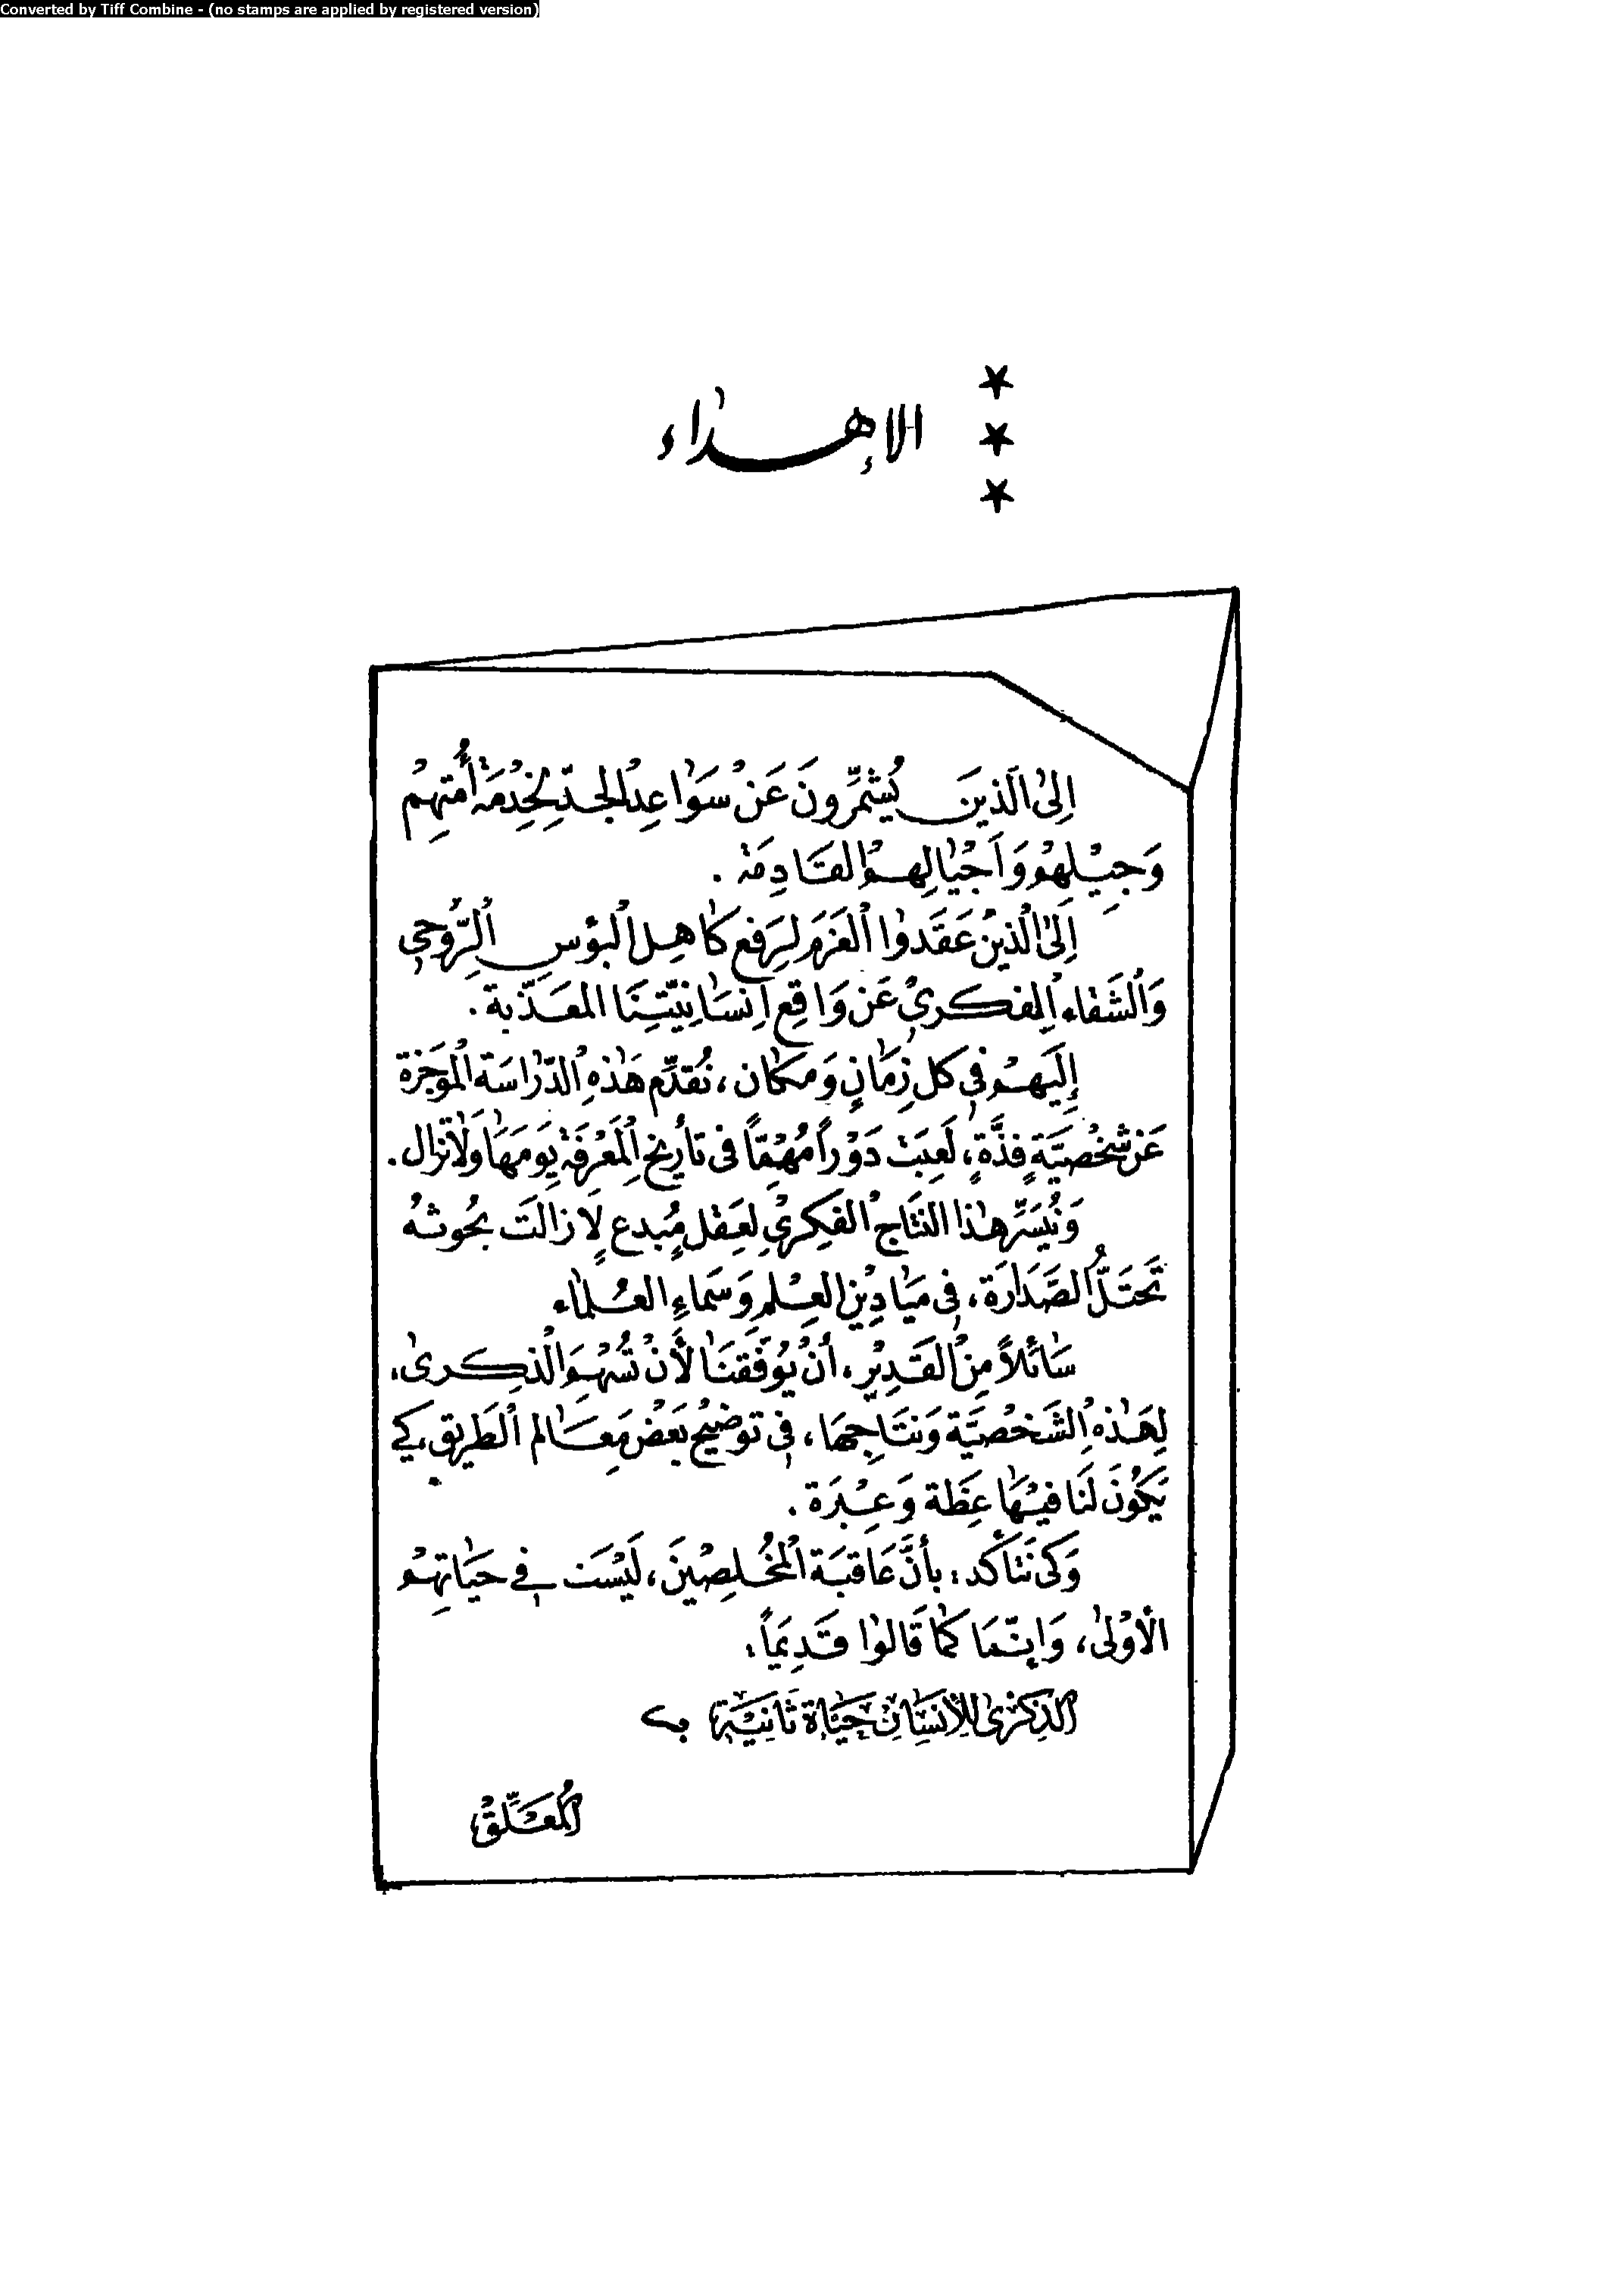 Converted by Tiff Combine - (no stamps are applied by registered version)
الإهداء
إلىٰ الَذينَ يُشمِّرونَ عَنْ سَوٰاعِدُ الجدِّ لِخِدْمَة أُمّتِهِمْ
وَجِيْلِهِمُ وَاَجْيٰالِهِمُ القَادِمَة .
إلىٰ الّذينَ عَقَدوٰا اْلعَزمَ لِرَفع كٰاهِل اْلبؤسِ اْلرّوُحي
وَاْلشَقاء اْلفكريْ عَن وَاقِع اِنسَانِيّتِنَا المعَذّبة .
إلَيهِمُ في كل زِمَانٍ وَمكَان ، نُقدِّم هَٰذهِ اْلدّرٰاسَة اْلموَجَزة
عَن شخْصيَّةٍ فذَّةٍ ، لَعِبَتْ دَوْراً مُهمّاً في تأريخ اْلمَعْرِفَة يَومَهَا وَلاٰتزال .
وَنُيسِّر هٰذا النتَاج اْلفكِريْ لعِقل مُبدع لٍا زالَت بحُوثهُ
تَحتَلُّ اْلصَدَارَة ، في ميَادِيْن العِلم وَسَماءِ العُلماء
سَائلاً مِنْ اْلقَديْر ، أنْ يُوَفّقنَا لأَنْ تُسْهِمَ اْلذِكرىٰ ،
لِهَٰذهِ اْلشَخصُيَّة وَنتَاجِهَا ، في توضيْح بَعَضْ مَعَالم اْلطَريق ، كي
يَكوُنَ لَنا فيْهَا عِظَة وَعِبْرَة .
وَكي نَتأكّد : بأنَّ عَاقبَة اْلمُخلِصيْنَ ، لَيْسَت في حيَاتِهِمْ
الأوْلىٰ ، وَإنّمَا كمَا قَالوا قَدِيَماً :
اْلذِكْرىٰ لِلأنسَانِ حَيَاة ثَانِيَة
اْلمُعَلِّقْ